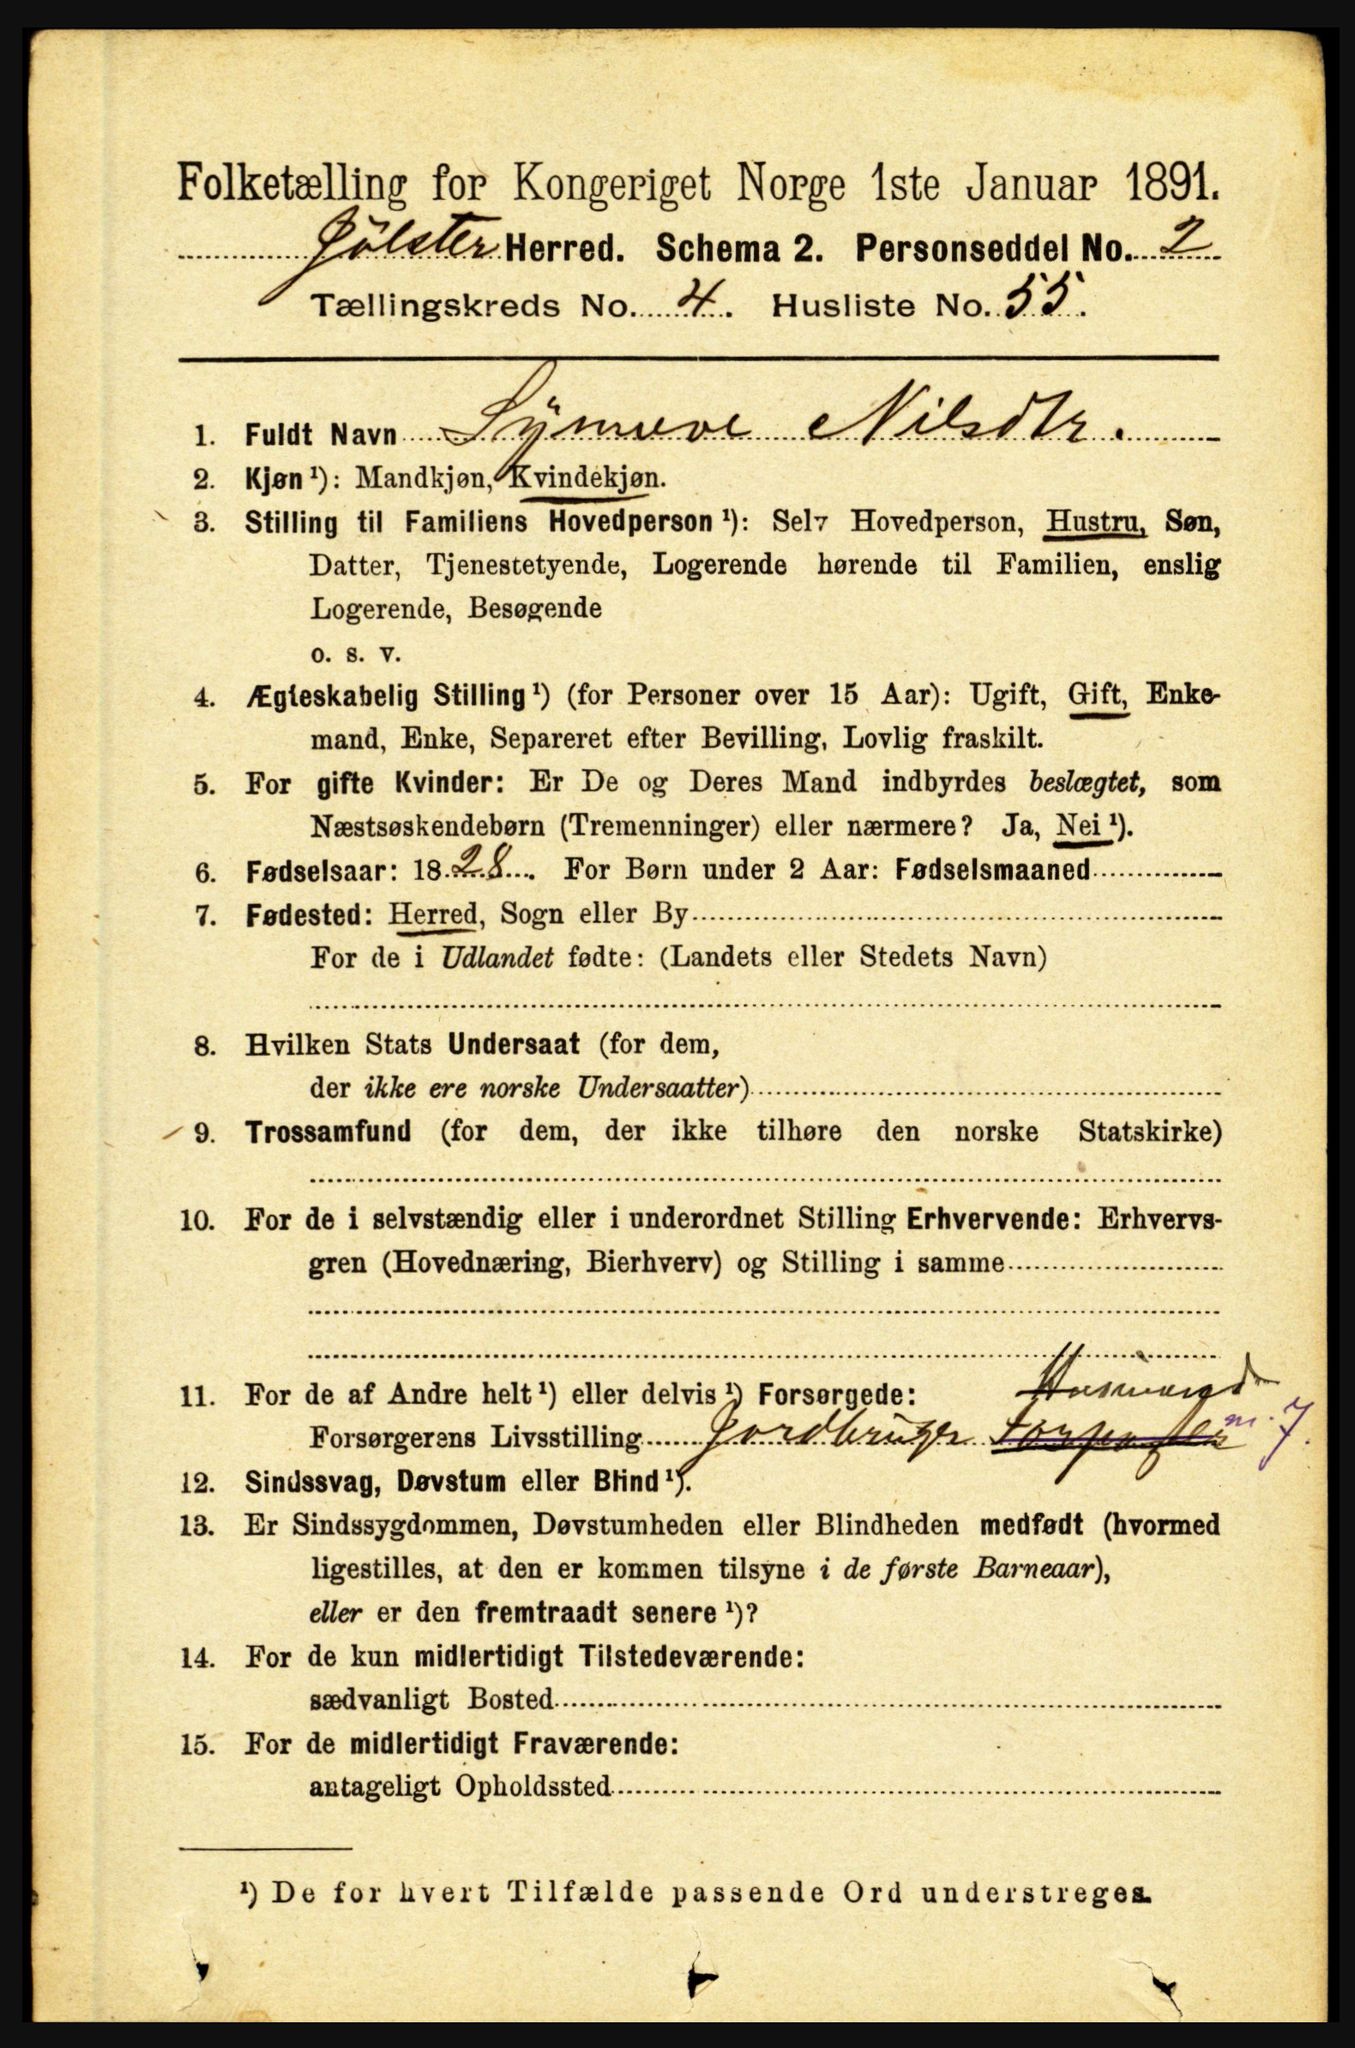 Folketælling for Kongeriget Norge 1ste Januar 1891.
Jölster Herred. Schema 2. Personseddel No. 2
Tællingskreds No. 4. Husliste No. 55.
1. Fuldt Navn Synneve Nilsdtr.
2. Kjøn ¹): Mandkjøn, Kvindekjøn.
3. Stilling til Familiens Hovedperson ¹): Selv Hovedperson, Hustru, Søn,
Datter, Tjenestetyende, Logerende hørende til Familien, enslig
Logerende, Besøgende
o. s. v.
4. Ægteskabelig Stilling ¹) (for Personer over 15 Aar): Ugift, Gift, Enke-
mand, Enke, Separeret efter Bevilling, Lovlig fraskilt.
5. For gifte Kvinder: Er De og Deres Mand indbyrdes beslægtet, som
Næstsøskendebørn (Tremenninger) eller nærmere? Ja, Nei ¹).
6. Fødselsaar: 1828. For Børn under 2 Aar: Fødselsmaaned
7. Fødested: Herred, Sogn eller By
For de i Udlandet fødte: (Landets eller Stedets Navn)
8. Hvilken Stats Undersaat (for dem,
der ikke ere norske Undersaatter)
9. Trossamfund (for dem, der ikke tilhøre den norske Statskirke)
10. For de i selvstændig eller i underordnet Stilling Erhvervende: Erhvervs-
gren (Hovednæring, Bierhverv) og Stilling i samme
Husmand
11. For de af Andre helt ¹) eller delvis ¹) Forsørgede:
Forsørgerens Livsstilling Jordbruger Forpagter m. 7.
12. Sindssvag, Døvstum eller Blind ¹).
13. Er Sindssygdommen, Døvstumheden eller Blindheden medfødt (hvormed
ligestilles, at den er kommen tilsyne i de første Barneaar),
eller er den fremtraadt senere ¹)?
14. For de kun midlertidigt Tilstedeværende:
sædvanligt Bosted
15. For de midlertidigt Fraværende:
antageligt Opholdssted
¹) De for hvert Tilfælde passende Ord understreges.